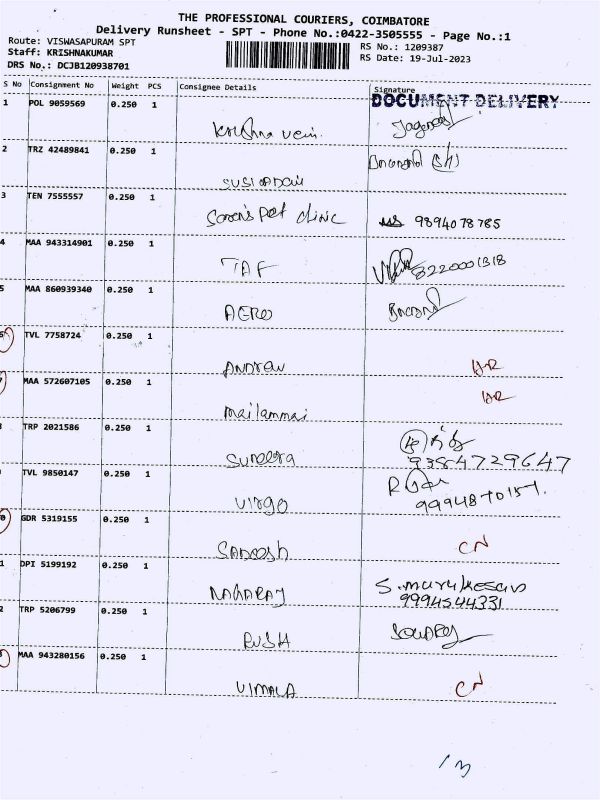 THE PROFESSIONAL COURIERS, COIMBATORE
Delivery Runsheet - SPT - Phone No.:0422-3505555 - Page No.:1
Route: VISWASAPURAM SPT RS No.: 1209387
Staff: KRISHNAKUMAR RS Date: 19-Jul-2023
DRS No.: DCJB120938701
S No Consignment No Weight PCS Consignee Details Signature
DOCUMENT DELIVERY
1 POL 9059569 0.250 1
Krishna
2 TRZ 42489841 0.250 1
3 TEN 7555557 0.250 1
Saran's Pet clinic 9894078785
4 MAA 943314901 0.250 1
TAF 8220001318
5 MAA 860939340 0.250 1
AERO
TVL 7758724 0.250 1
Andrew
MAA 572607105 0.250 1
Mailammai
TRP 2021586 0.250 1
9384729647
TVL 9850147 0.250 1
Virgo
GDR 5319155 0.250 1
CN
1 DPI 5199192 0.250 1
NAGARAJ S. murukesan
9994544331
2 TRP 5206799 0.250 1
MAA 943280156 0.250 1
VIMALA CN
13